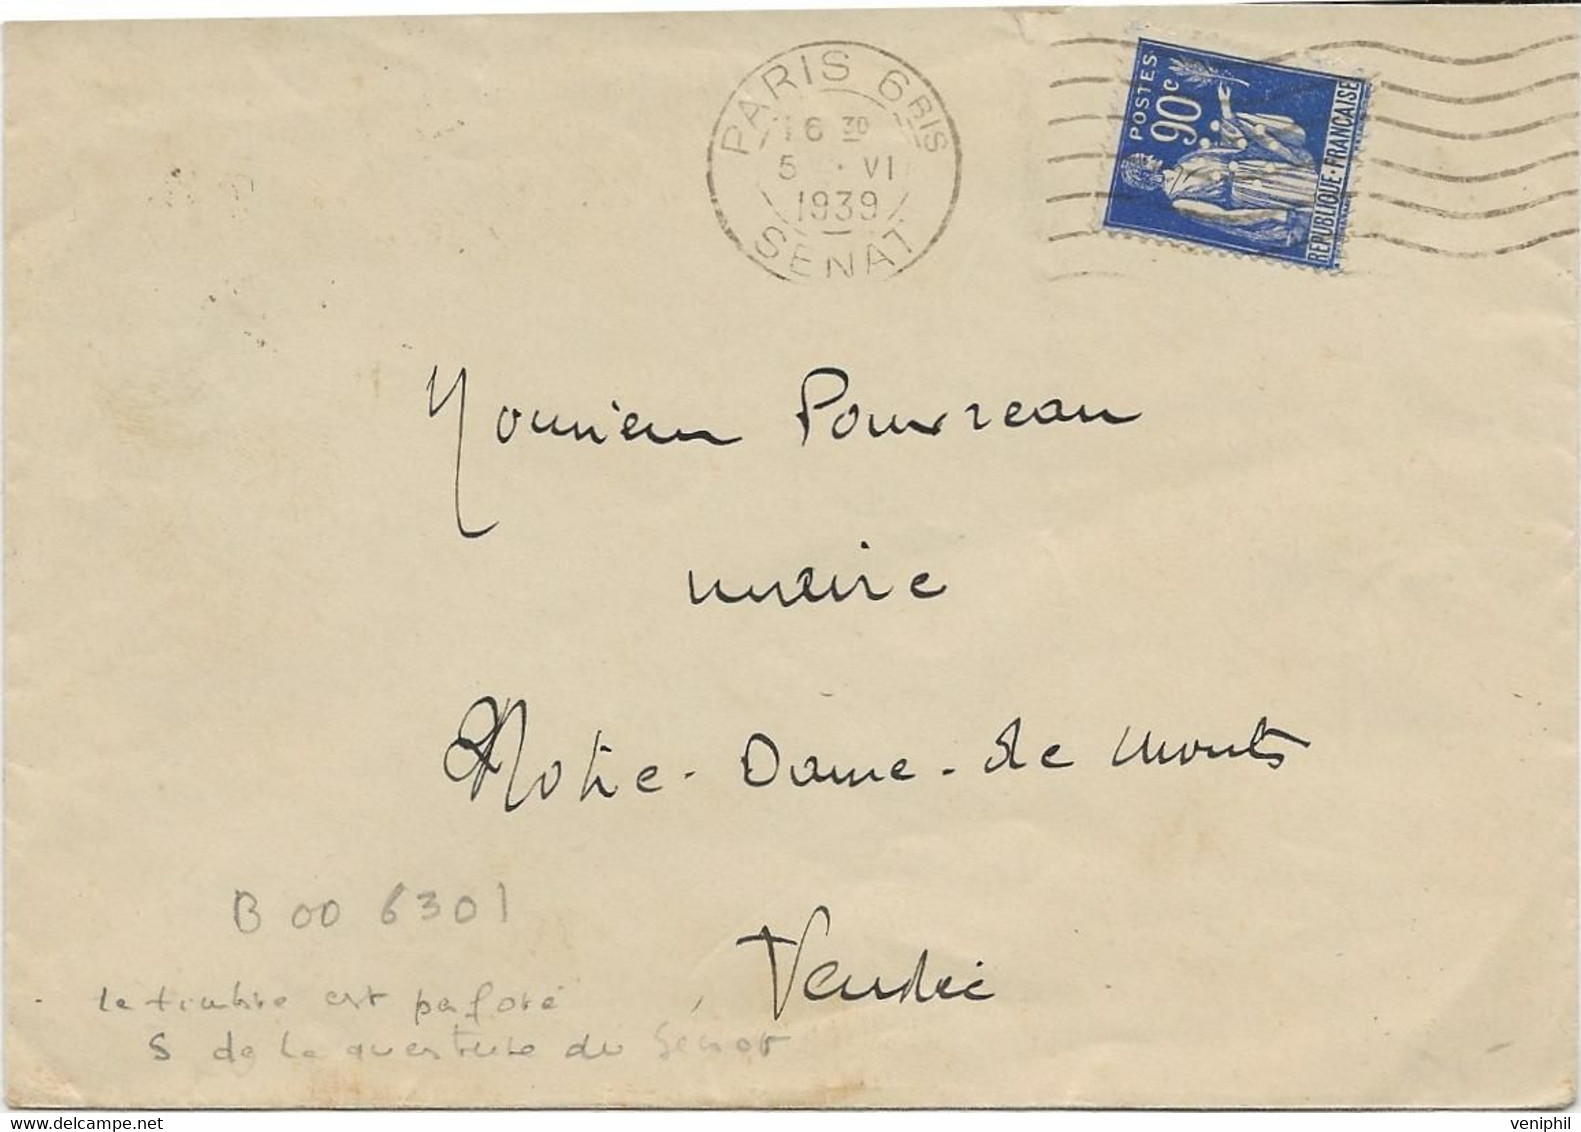 PARIS 6 BIS
16 30
5 · VI
1939
SENAT
POSTES
90c
REPUBLIQUE·FRANCAISE
Monsieur Pouvreau
maire
Notre-Dame-de Monts
Vendée
B 00 6301
le timbre est perforé
S de la questure du Sénat
veniphil